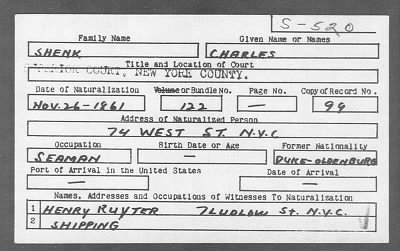 S-520
Family Name Given Name or Names
SHENK CHARLES
Title and Location of Court
SUPERIOR COURT, NEW YORK COUNTY.
Date of Naturalization Volume or Bundle No. Page No. Copy of Record No.
NOV. 26-1861 122 — 99
Address of Naturalized Person
74 WEST ST. N.Y.C
Occupation Birth Date or Age Former Nationality
SEAMAN — DUKE-OLDENBURG
Port of Arrival in the United States Date of Arrival
— —
Names, Addresses and Occupations of Witnesses To Naturalization
1 HENRY RUYTER 7 LUDLOW St. N.Y.C.
2 SHIPPING